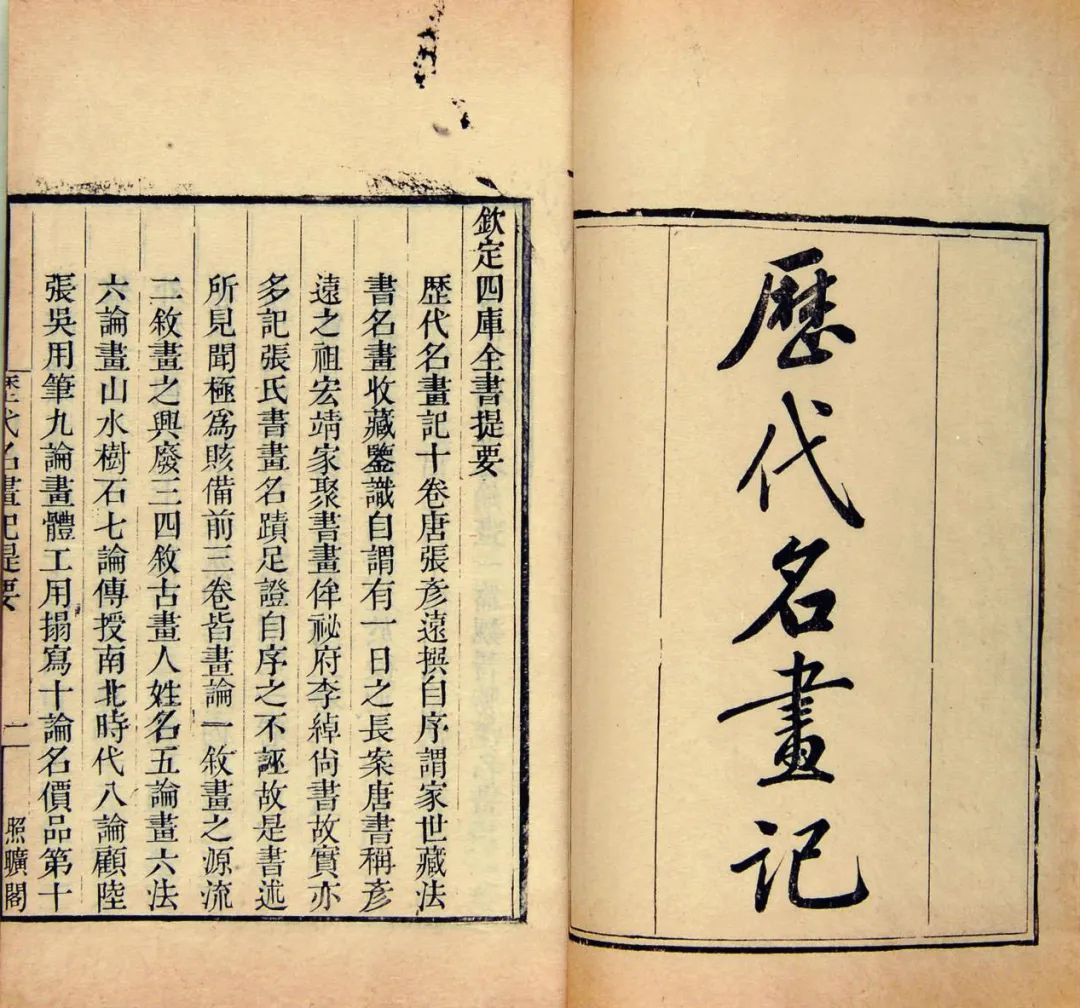 歷代名畫記
欽定四庫全書提要
歷代名畫記十卷唐張彥遠撰自序謂家世藏法
書名畫收藏鑒識自謂有一日之長案唐書稱彥
遠之祖宏靖家聚書畫侔祕府李綽尙書故實亦
多記張氏書畫名蹟足證自序之不誣故是書述
所見聞極爲賅備前三卷皆畫論一敘畫之源流
二敘畫之興廢三四敘古畫人姓名五論畫六法
六論畫山水樹石七論傳授南北時代八論顧陸
張吳用筆九論畫體工用搨寫十論名價品第十
歷代名畫記提要 一 照曠閣